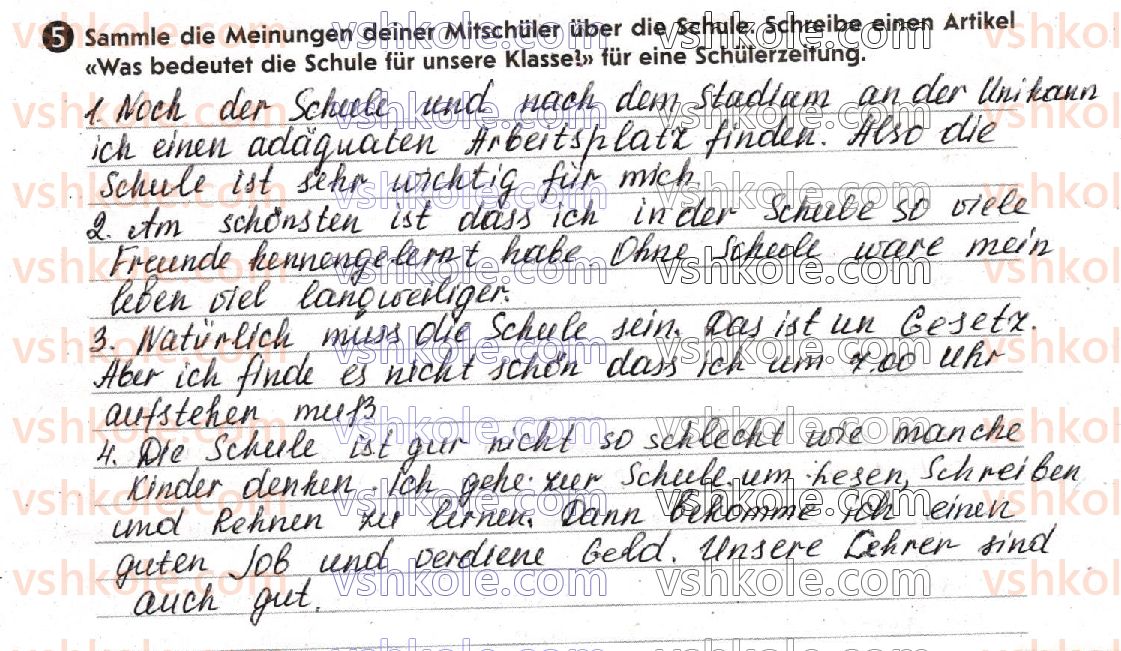 5 Sammle die Meinungen deiner Mitschüler über die Schule. Schreibe einen Artikel
«Was bedeutet die Schule für unsere Klasse!» für eine Schülerzeitung.
1. Noch der Schule und nach dem Stadium an der Uni kann
ich einen adäquaten Arbeitsplatz finden. Also die
Schule ist sehr wichtig für mich.
2. Am schönsten ist dass ich in der Schule so viele
Freunde kennengelernt habe Ohne Schule ware mein
leben viel langweiliger.
3. Natürlich muss die Schule sein. Das ist un Gesetz.
Aber ich finde es nicht schön dass ich um 7.00 Uhr
aufstehen muß
4. Die Schule ist gur nicht so schlecht wie manche
Kinder denken. Ich gehe zur Schule, um Lesen, Schreiben
und Rehnen zu lirnen. Dann bekomme ich einen
guten Job und verdiene Geld. Unsere Lehrer sind
auch gut.
vshkole.com